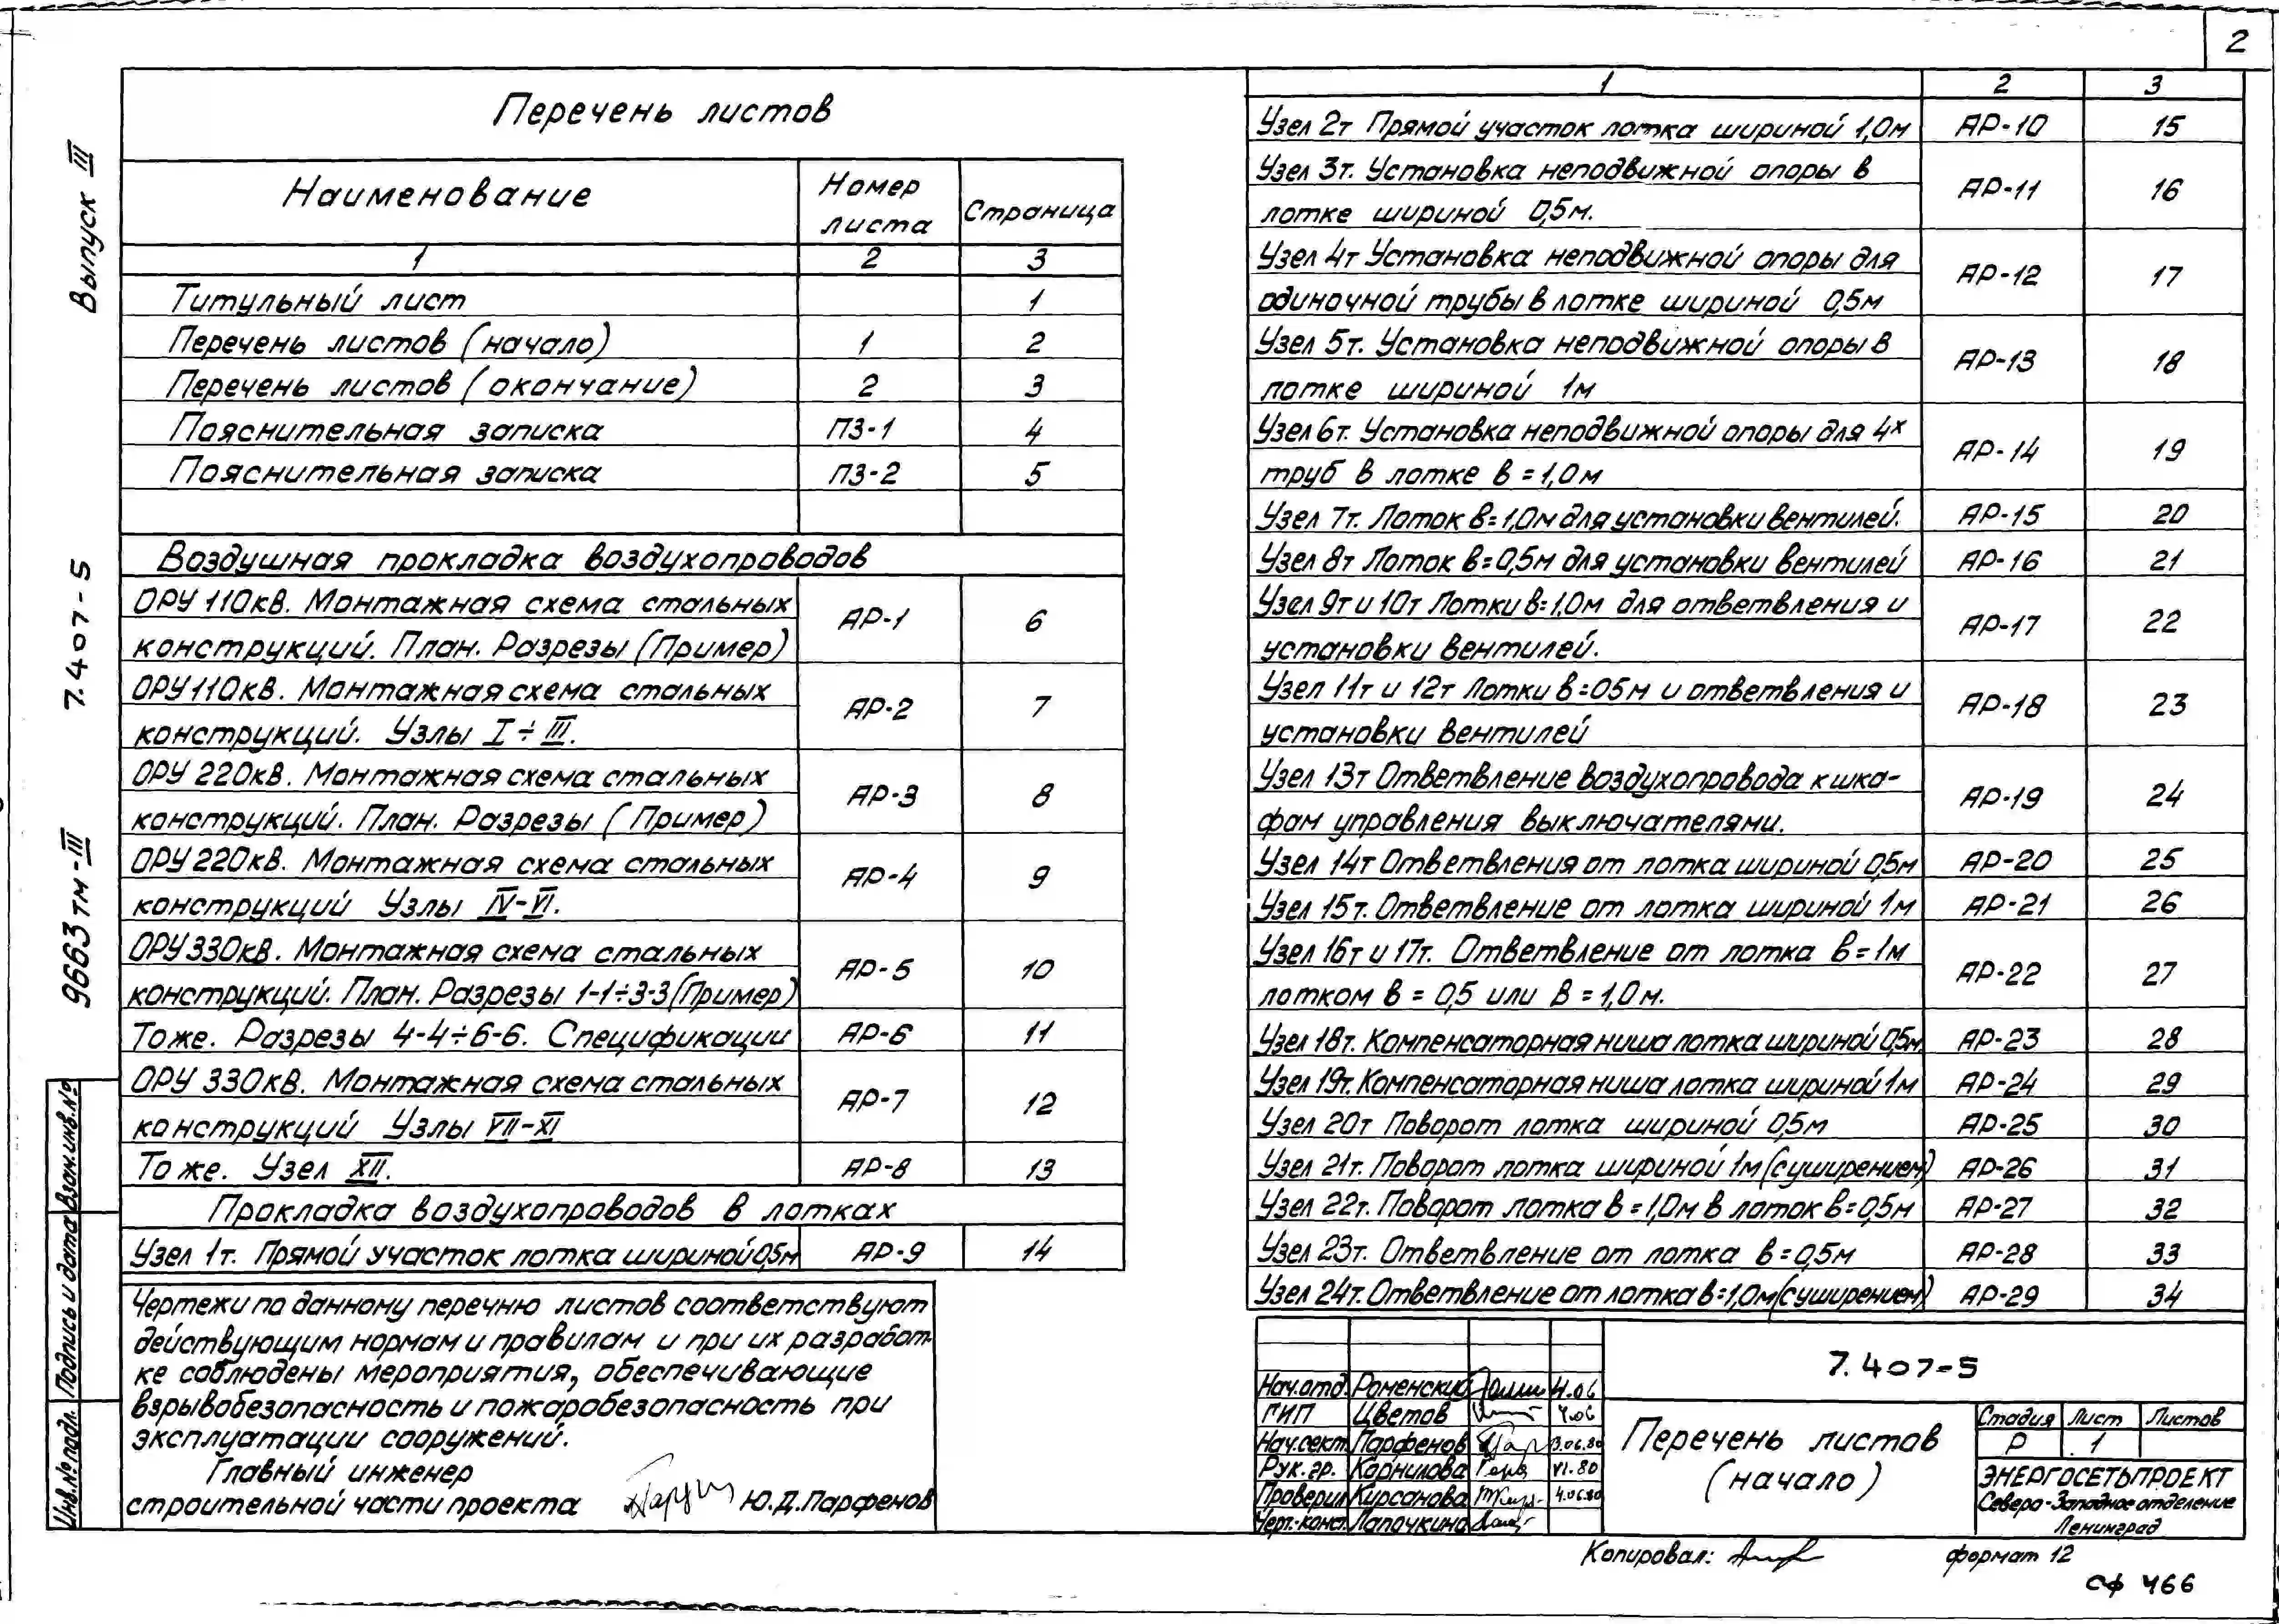 2
Выпуск III
7.407-5
9663тм-III
Перечень листов
Наименование
Номер листа
Страница
1 2 3
Титульный лист 1
Перечень листов (начало) 1 2
Перечень листов (окончание) 2 3
Пояснительная записка ПЗ-1 4
Пояснительная записка ПЗ-2 5
Воздушная прокладка воздухопроводов
ОРУ 110кв. Монтажная схема стальных
конструкций. План. Разрезы (Пример) АР-1 6
ОРУ 110кв. Монтажная схема стальных
конструкций. Узлы I÷III. АР-2 7
ОРУ 220кв. Монтажная схема стальных
конструкций. План. Разрезы (Пример) АР-3 8
ОРУ 220кв. Монтажная схема стальных
конструкций Узлы IV-VI. АР-4 9
ОРУ 330кв. Монтажная схема стальных
конструкций. План. Разрезы 1-1÷3-3 (Пример) АР-5 10
Тоже. Разрезы 4-4÷6-6. Спецификации АР-6 11
ОРУ 330кв. Монтажная схема стальных
конструкций Узлы VII-XI АР-7 12
Тоже. Узел XII. АР-8 13
Прокладка воздухопроводов в лотках
Узел 1т. Прямой участок лотка шириной 0,5м АР-9 14
Чертежи по данному перечню листов соответствуют
действующим нормам и правилам и при их разработ-
ке соблюдены мероприятия, обеспечивающие
взрывобезопасность и пожаробезопасность при
эксплуатации сооружений.
Главный инженер
строительной части проекта Ю.Д.Парфенов
Взам.инв.№
Подпись и дата
Инв.№ подл.
1 2 3
Узел 2т Прямой участок лотка шириной 1,0м АР-10 15
Узел 3т. Установка неподвижной опоры в
лотке шириной 0,5м. АР-11 16
Узел 4т Установка неподвижной опоры для
одиночной трубы в лотке шириной 0,5м АР-12 17
Узел 5т. Установка неподвижной опоры в
лотке шириной 1м АР-13 18
Узел 6т. Установка неподвижной опоры для 4х
труб в лотке в = 1,0м АР-14 19
Узел 7т. Лоток в=1,0м для установки вентилей. АР-15 20
Узел 8т Лоток в=0,5м для установки вентилей АР-16 21
Узел 9т и 10т Лотки в=1,0м для ответвления и
установки вентилей. АР-17 22
Узел 11т и 12т Лотки в=05м и ответвления и
установки вентилей АР-18 23
Узел 13т Ответвление воздухопровода к шка-
фам управления выключателями. АР-19 24
Узел 14т Ответвления от лотка шириной 0,5м АР-20 25
Узел 15т. Ответвление от лотка шириной 1м АР-21 26
Узел 16т и 17т. Ответвление от лотка в=1м
лотком в = 0,5 или в = 1,0м. АР-22 27
Узел 18т. Компенсаторная ниша лотка шириной 0,5м. АР-23 28
Узел 19т. Компенсаторная ниша лотка шириной 1м АР-24 29
Узел 20т Поворот лотка шириной 0,5м АР-25 30
Узел 21т. Поворот лотка шириной 1м (с уширением) АР-26 31
Узел 22т. Поворот лотка в=1,0м в лоток в=0,5м АР-27 32
Узел 23т. Ответвление от лотка в=0,5м АР-28 33
Узел 24т. Ответвление от лотка в=1,0м (с уширением) АР-29 34
7.407-5
Нач.отд. Роменский
ГИП Цветов 4.06
Нач.сект. Парфенов 3.06.80
Рук.гр. Корнилова VI.80
Проверил Кирсанова 4.06.80
Черт.-конст. Лапочкина
Перечень листов
(начало)
Стадия Лист Листов
Р 1
ЭНЕРГОСЕТЬПРОЕКТ
Северо-Западное отделение
Ленинград
Копировал: формат 12
сф 466